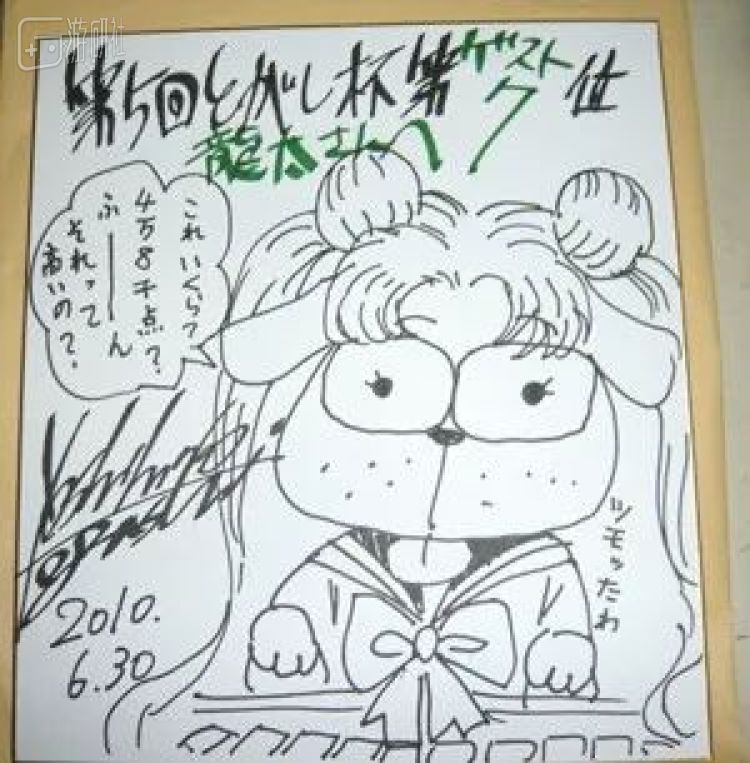 游研社
第5回とがし杯第ゲスト7位
龍太さんへ
これいくら?
4万8千点?
ふーーん
それって
高いの?
ツモったわ
2010.
6.30